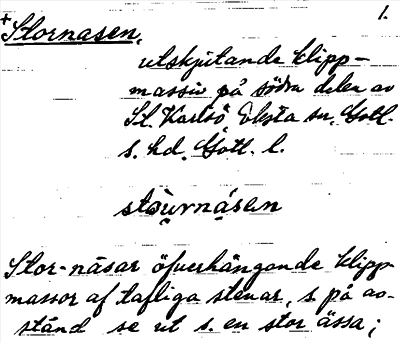 + Stornasen, 1.
utskjutande klipp-
massiv på södra delen av
St. Karlsö Eksta sn, Gotl.
s. hd. Gotl. l.
stọu̯rnạ́sen
Stor-näsar öfverhängande klipp-
massor af tafliga stenar, s. på av-
stånd se ut s. en stor ässa;